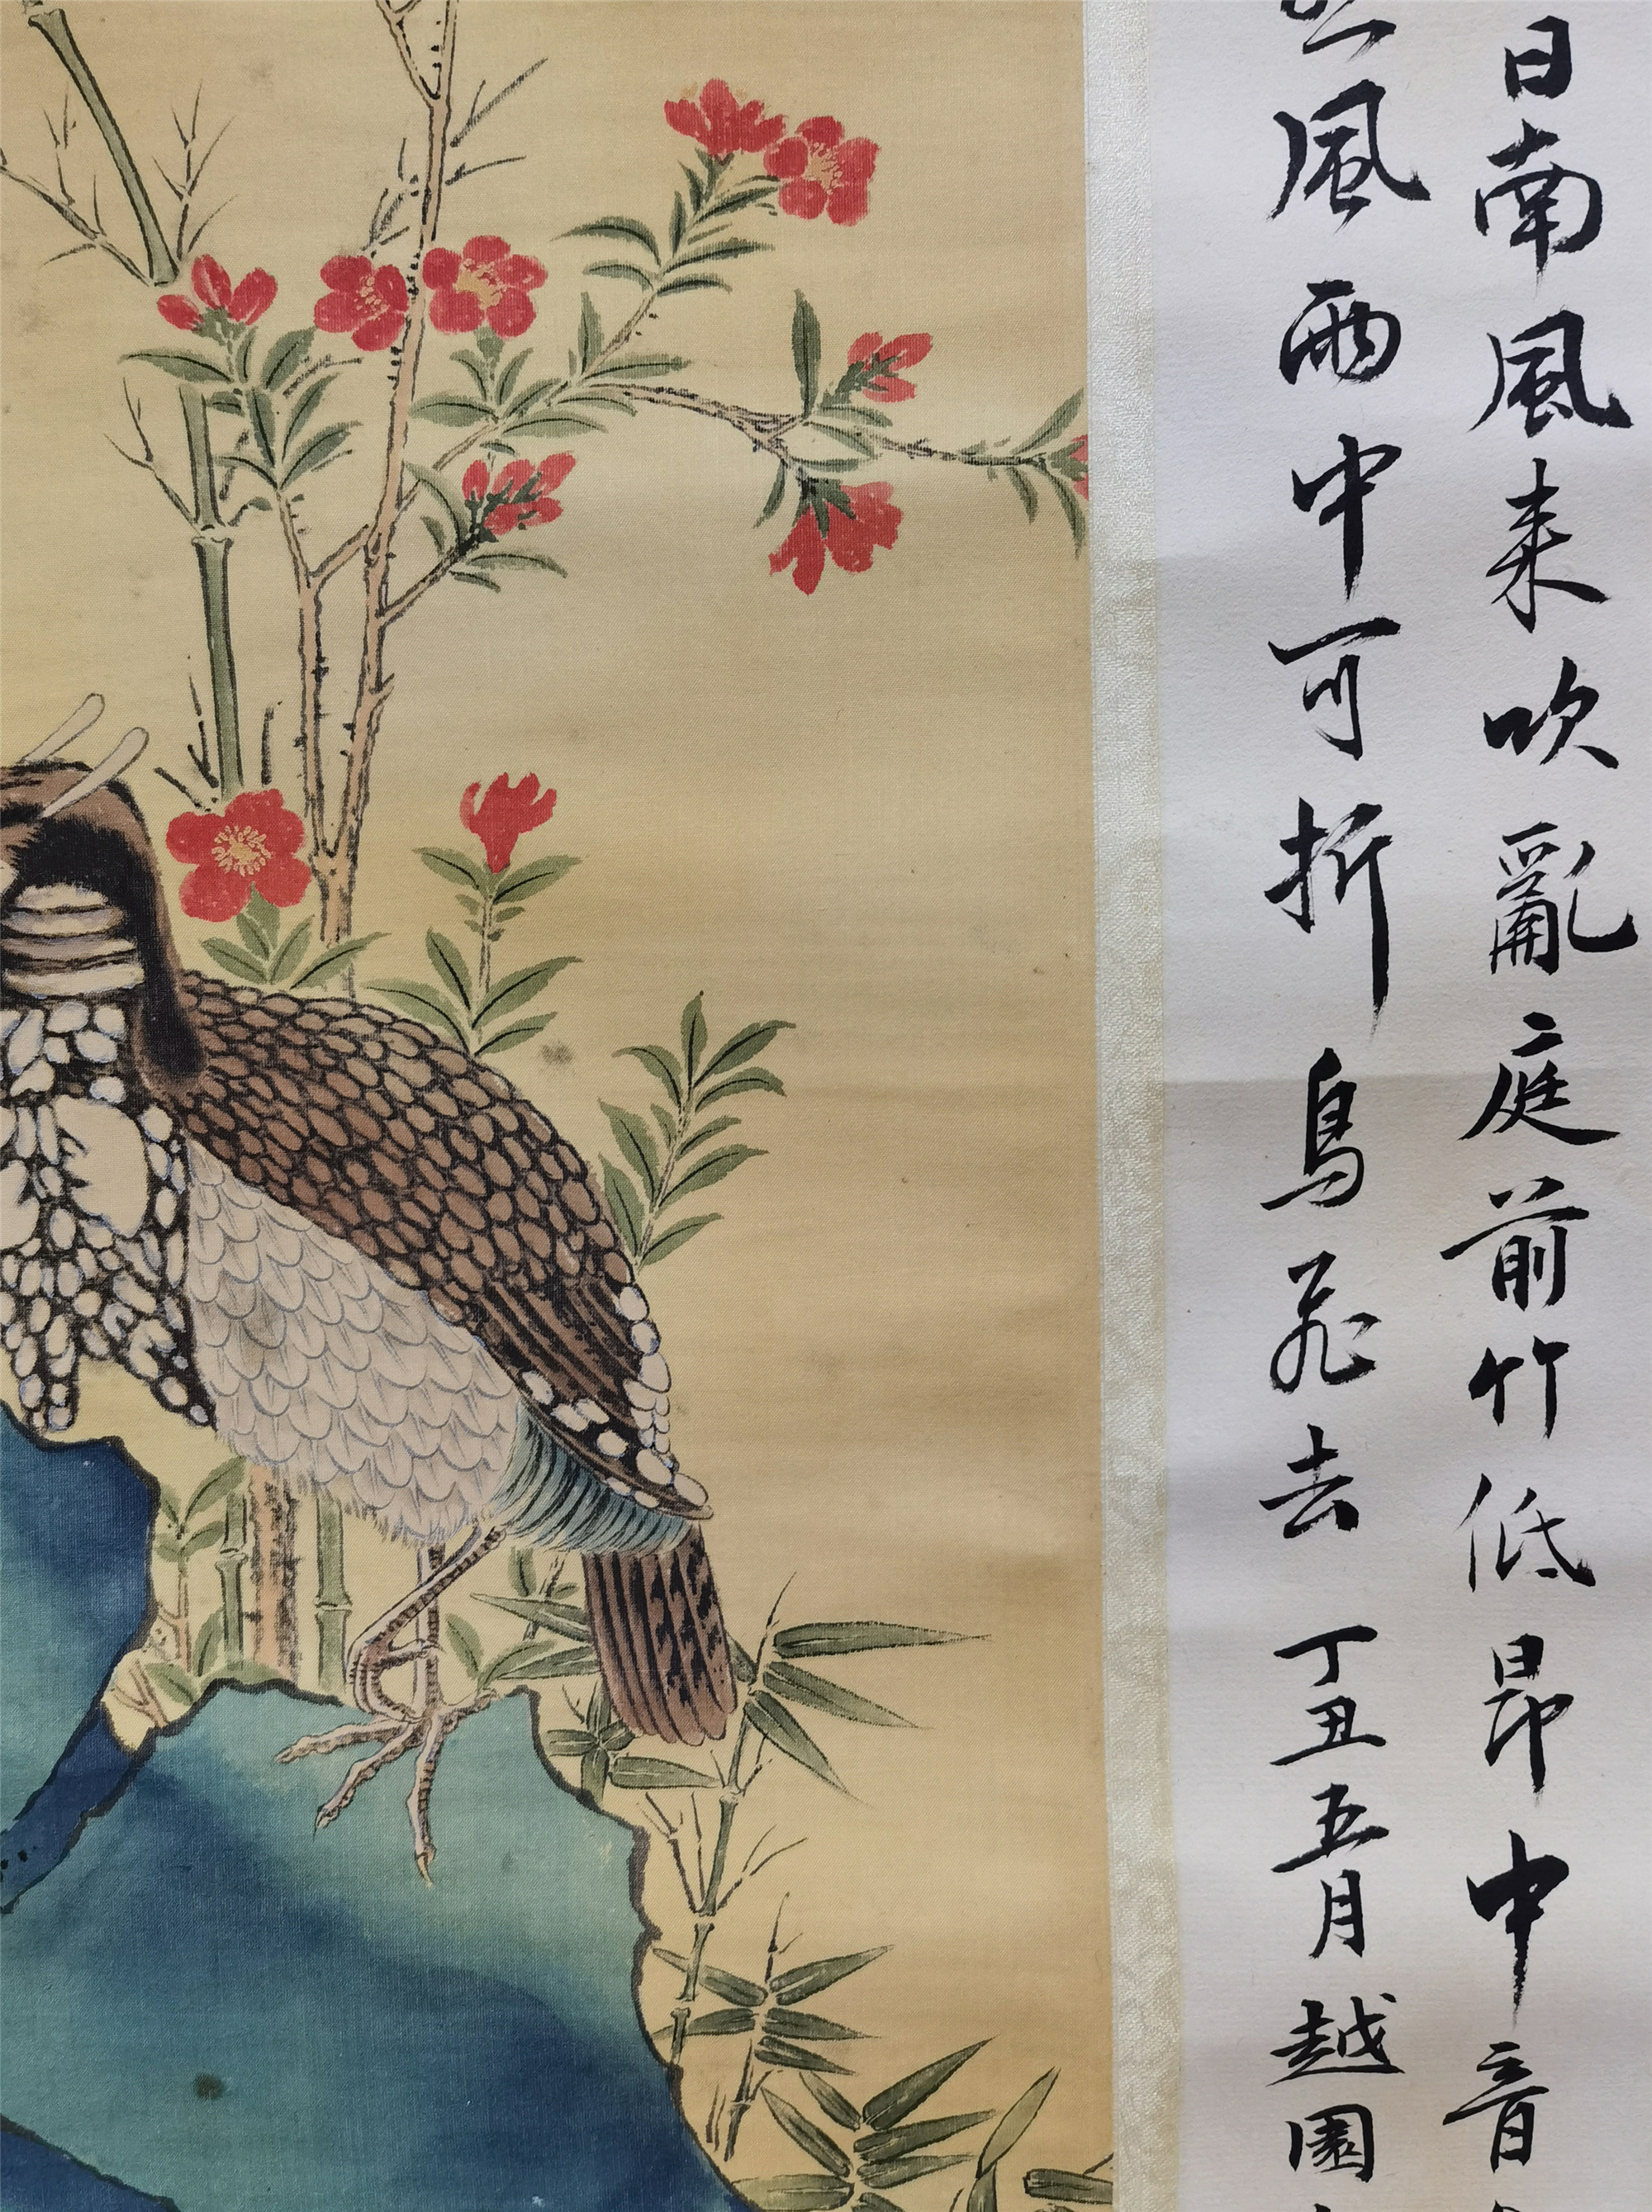 日南風来吹亂庭前竹低昂中音
風雨中可折鳥飛去丁丑五月越園